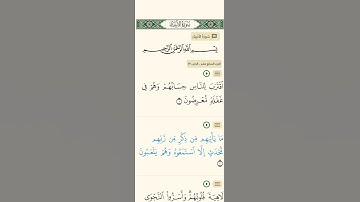 سُورَةُ الأَنبِيَاءِ
سُورَةُ الأنبياء
بِسْمِ اللَّهِ الرَّحْمَٰنِ الرَّحِيمِ
ٱقْتَرَبَ لِلنَّاسِ حِسَابُهُمْ وَهُمْ فِى
غَفْلَةٍ مُّعْرِضُونَ ١
مَا يَأْتِيهِم مِّن ذِكْرٍ مِّن رَّبِّهِم
مُّحْدَثٍ إِلَّا ٱسْتَمَعُوهُ وَهُمْ يَلْعَبُونَ
٢
لَاهِيَةً قُلُوبُهُمْ وَأَسَرُّوا۟ ٱلنَّجْوَى